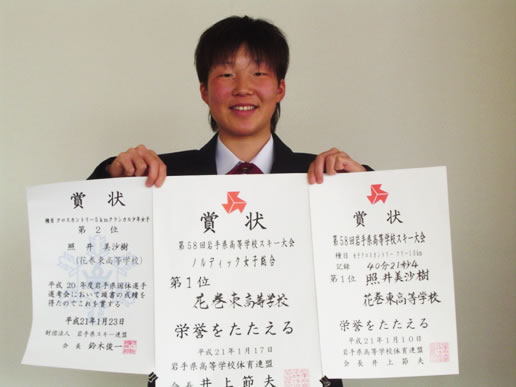 賞状
種目 クロスカントリー5kmクラシカル少年女子
第2位
照井美沙樹
(花巻東高等学校)
平成20年度岩手県国体選手
選考会において頭書の成績を
得たのでこれを賞する
平成21年1月23日
財団法人 岩手県スキー連盟
会長 鈴木俊一
賞状
第58回岩手県高等学校スキー大会
ノルディック女子総合
第1位
花巻東高等学校
栄誉をたたえる
平成21年1月17日
岩手県高等学校体育連盟
会長 井上節夫
賞状
第58回岩手県高等学校スキー大会
種目
記録 40分21秒4
第1位 照井美沙樹
花巻東高等学校
栄誉をたたえる
平成21年1月10日
岩手県高等学校体育連盟
会長 井上節夫